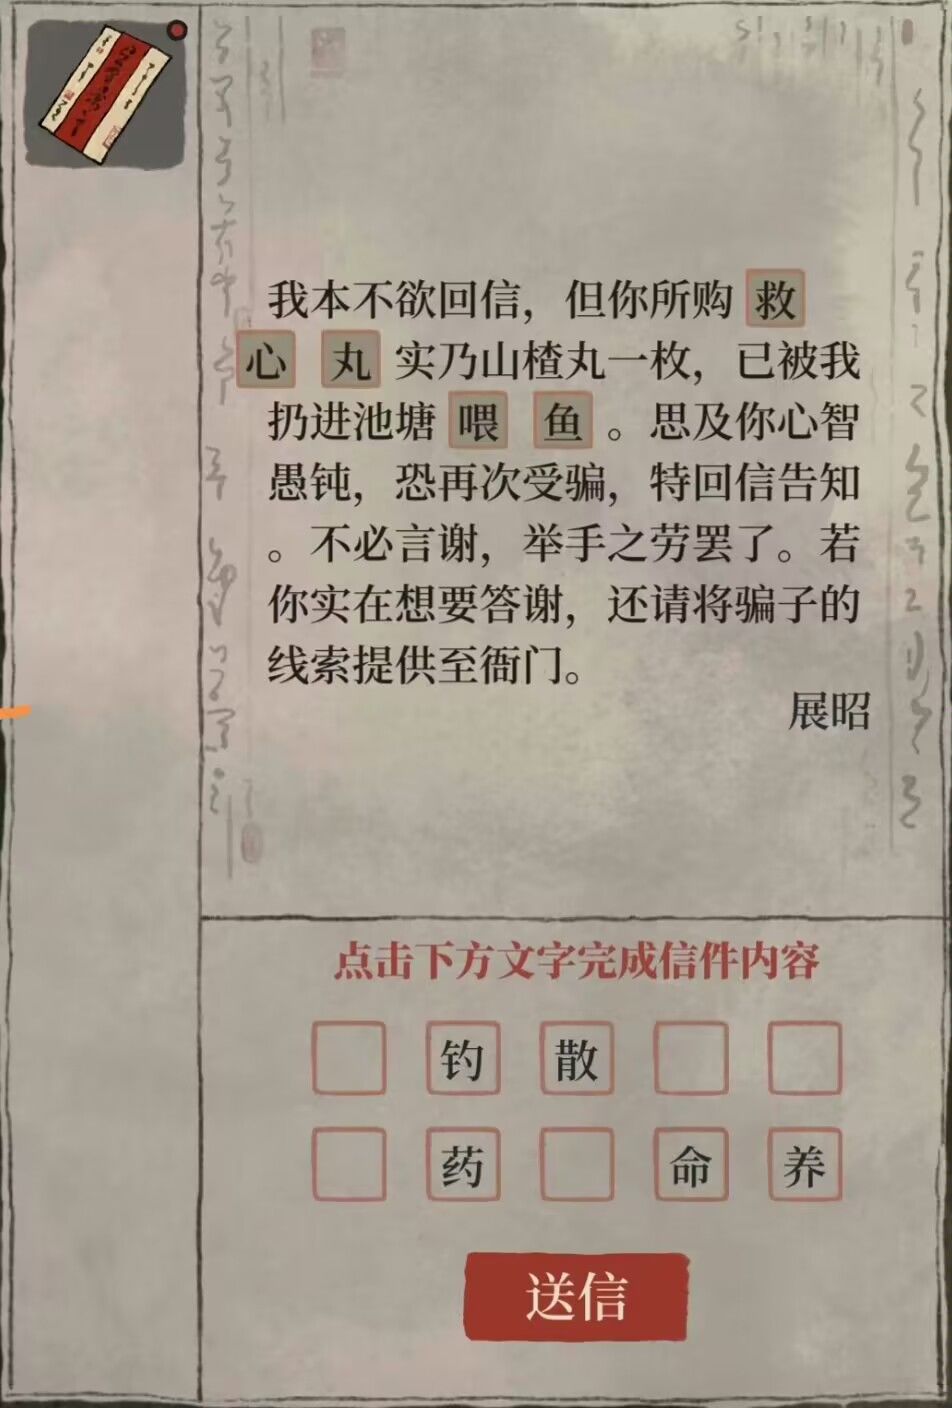 我本不欲回信，但你所购 救
心 丸 实乃山楂丸一枚，已被我
扔进池塘 喂 鱼 。思及你心智
愚钝，恐再次受骗，特回信告知
。不必言谢，举手之劳罢了。若
你实在想要答谢，还请将骗子的
线索提供至衙门。
展昭
点击下方文字完成信件内容
钓 散
药 命 养
送信